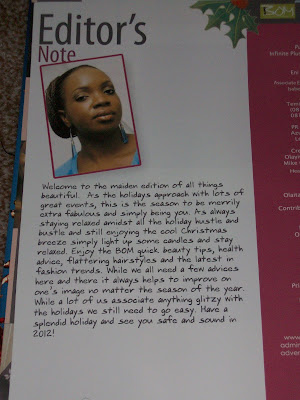 Editor's
Note
Welcome to the maiden edition of all things
beautiful. As the holidays approach with lots of
great events, this is the season to be merrily
extra fabulous and simply being you. As always
staying relaxed amidst all the holiday hustle and
bustle and still enjoying the cool Christmas
breeze simply light up some candles and stay
relaxed. Enjoy the BOM quick beauty tips, health
advice, flattering hairstyles and the latest in
fashion trends. While we all need a few advices
here and there it always helps to improve on
one's image no matter the season of the year.
While a lot of us associate anything glitzy with
the holidays we still need to go easy. Have a
splendid holiday and see you safe and sound in
2012!
BOM